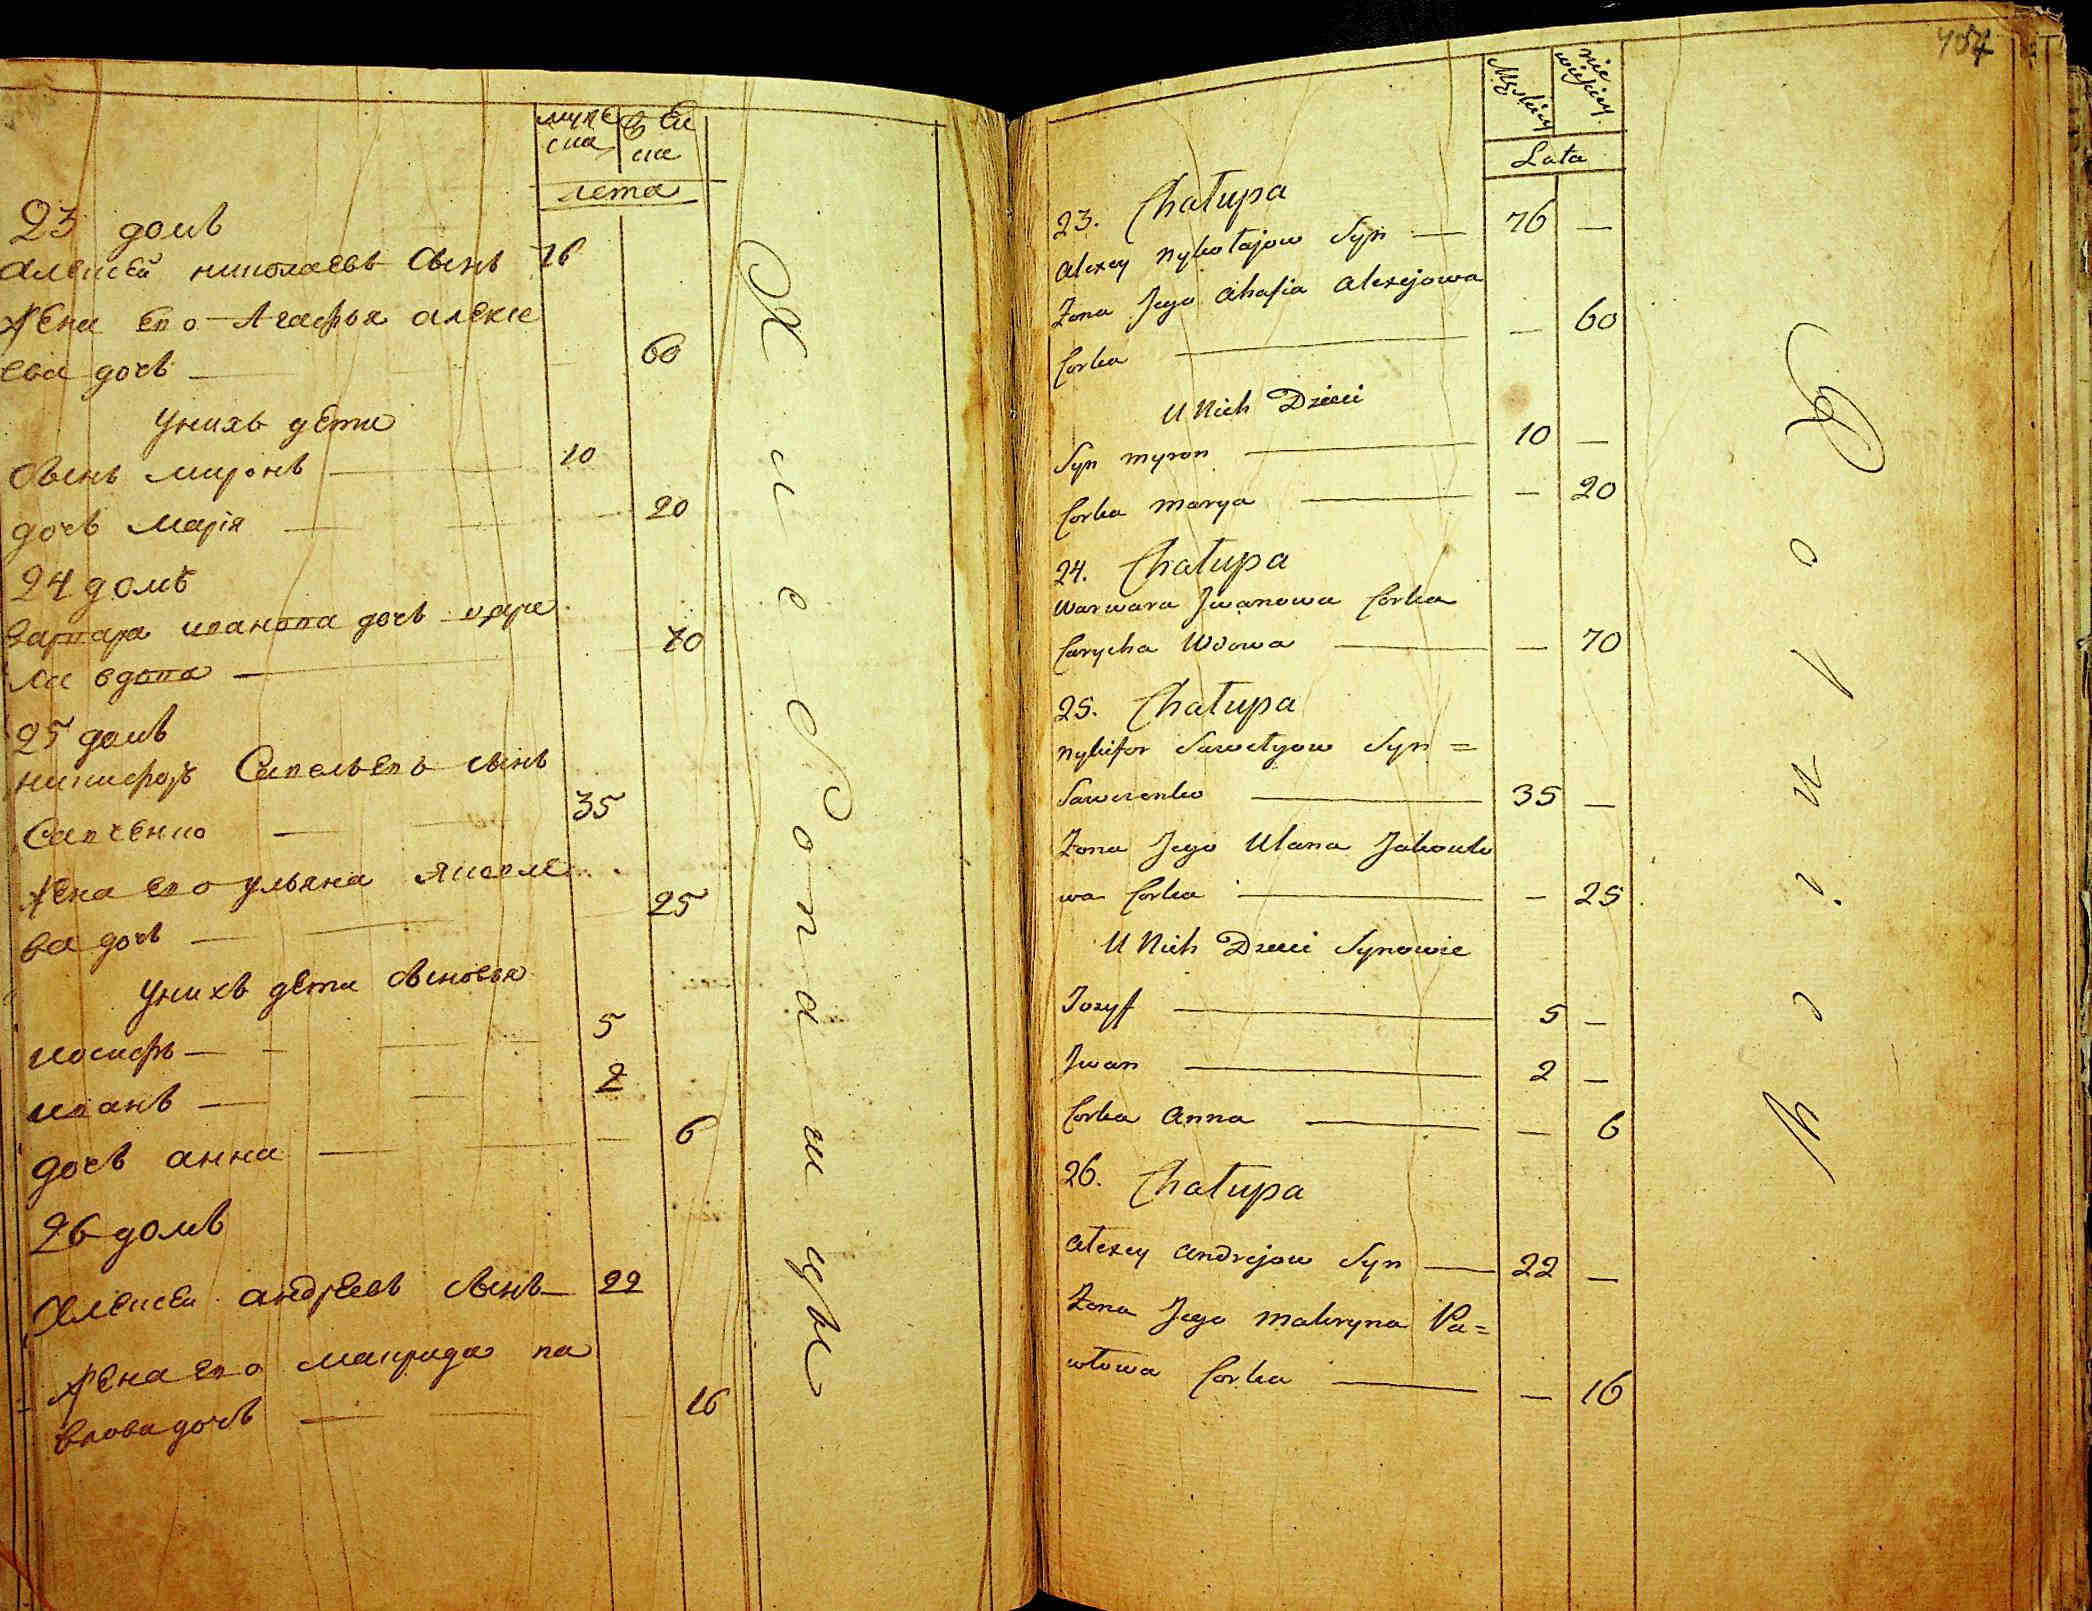 мужеска женска
лета
23 домъ
Алексей николаевъ сынъ 76
Жена его Агафья алексе
ева дочь — 60
у нихъ дети
Сынъ миронъ — 10
дочь марія — 20
24 домъ
варвара иванова дочь
ха вдова — 70
25 домъ
никифоръ Савельевъ сынъ
Савченко — 35
Жена его ульяна яковле
ва дочь — 25
у нихъ дети сыновья
иосифъ — 5
иванъ — 2
дочь анна — 6
26 домъ
Алексей андреевъ сынъ — 22
Жена его макрида па
влова дочь — 16
404
Męskiey niewieściey
Lata
23. Chałupa
Alexey Nykołajow Syn — 76 —
Żona Jego Ahafia Alexejowa
Corka — — 60
U Nich Dzieci
Syn Myron — 10 —
Corka Marya — — 20
24. Chałupa
Warwara Jwanowa Corka
Carycha Wdowa — — 70
25. Chałupa
Nykifor Sawełyow Syn =
Sawczenko — 35 —
Żona Jego Ulana Jakowlo
wa Corka — — 25
U Nich Dzieci Synowie
Jozyf — 5 —
Jwan — 2 —
Corka Anna — — 6
26. Chałupa
Alexey Andrejow Syn — 22 —
Żona Jego Makryna Pa=
włowa Corka — — 16